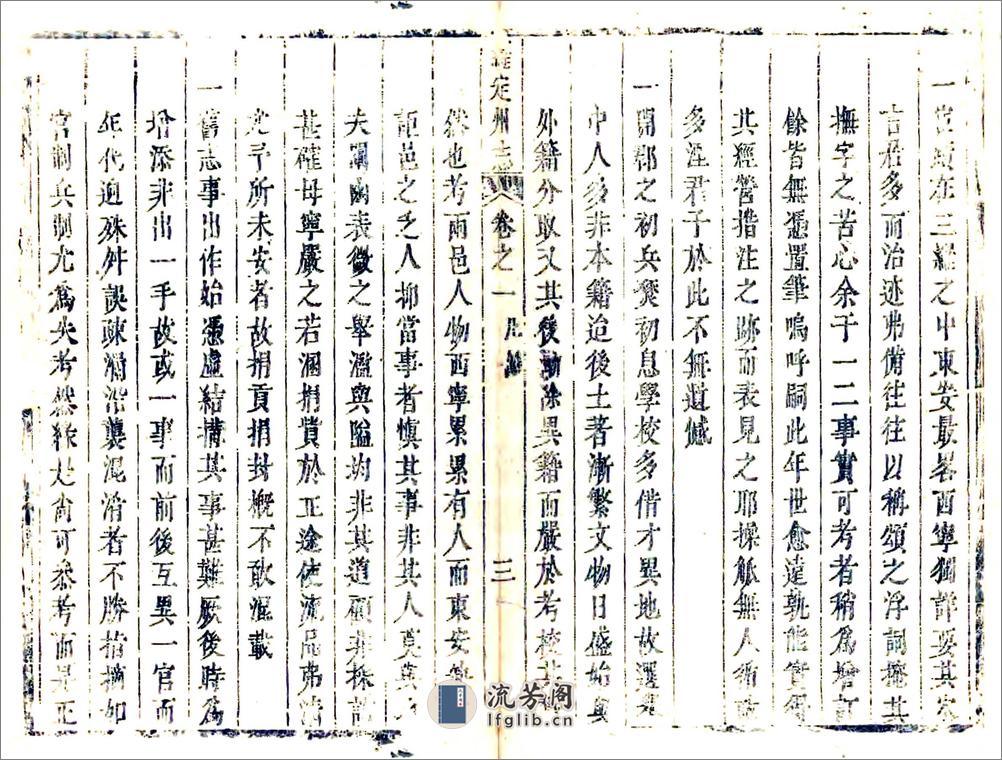 一宦蹟在三羅之中東安最畧西寧獨詳要其大
言君多而治迹弗備往往以稱頌之浮詞掩其
撫字之苦心余于一二事實可考者稍為增訂
餘皆無憑置筆嗚呼嗣此年世愈遠孰能實
其經營措注之跡而表見之耶操觚無人循
多湮君子於此不無遺憾
一開郡之初兵燹初息學校多借才異地故選
中人多非本籍迨後土著漸繁文物日盛始與
外籍分取又其後漸除異籍而嚴於考校其
然也考兩邑人物西寧累累有人而東安
詎邑之乏人抑當事者慎其事非其人莫
夫闡幽表微之舉濫與隘均非其道顧非採
甚確毋寧嚴之若濶捐貲於正途使流品弗清
尤予所未安者故捐貢捐封概不敢混載
一舊志事出作始憑虛結搆其事甚難厥後時為
增添非出一手故或一事而前後互異一官而
年代迥殊舛誤踈漏沿襲混淆者不勝指摘如
官制兵制尤為失考然綠是尚可叅考而是正
羅定州志 卷之一 凡例 三
流芳阁
lfglib.cn